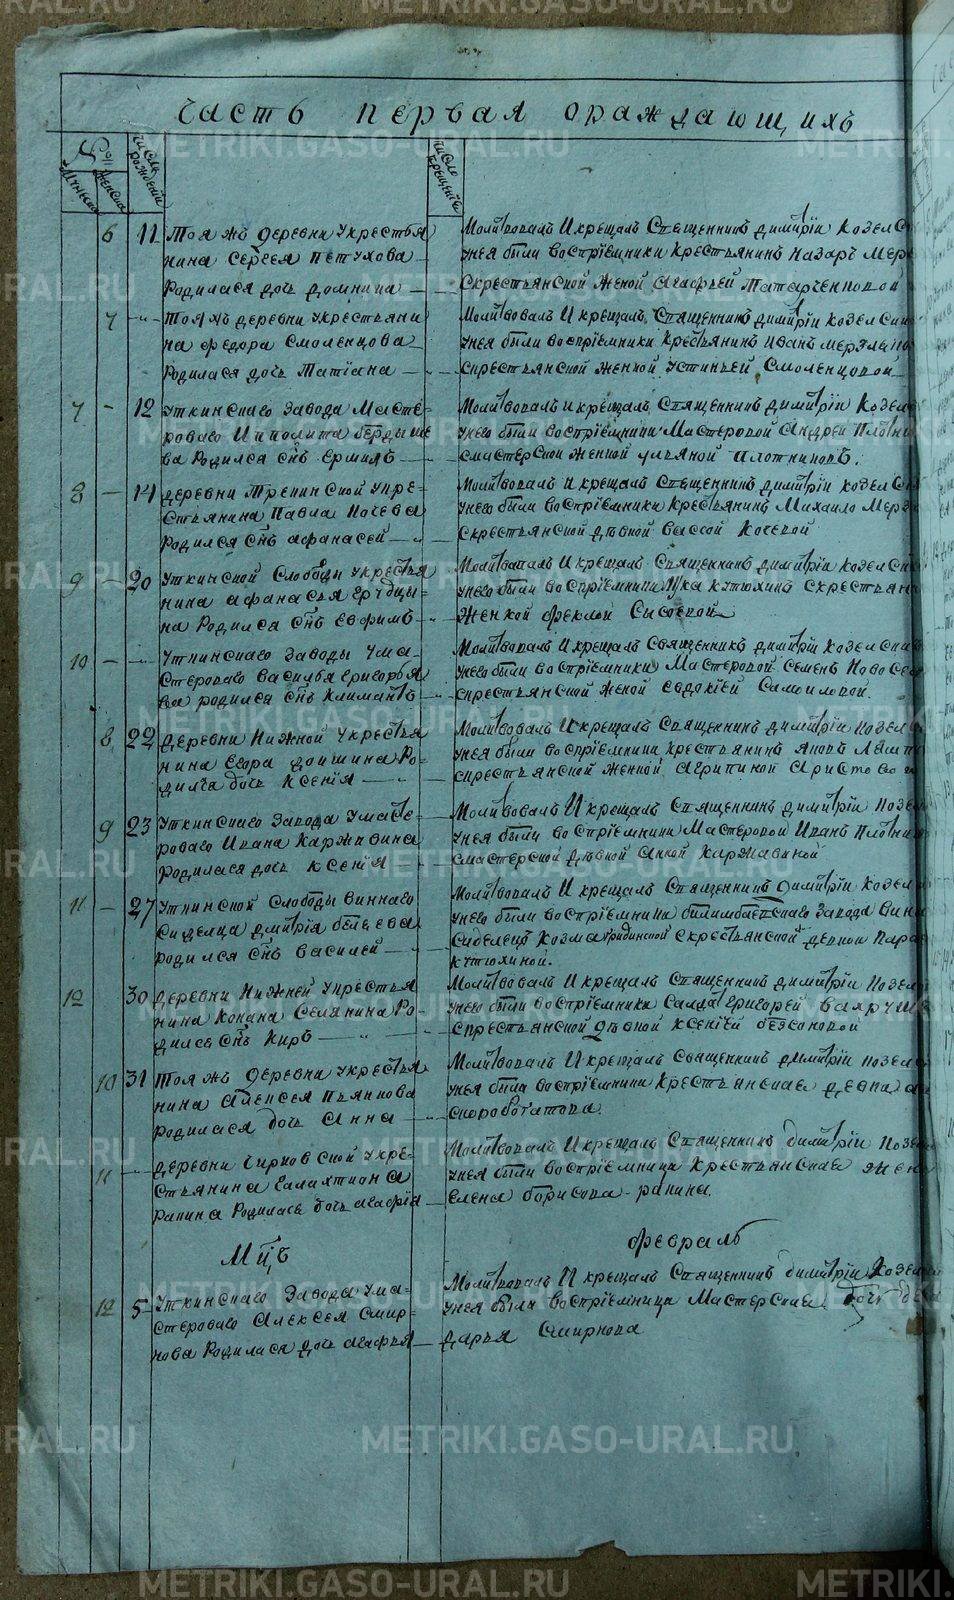 Часть первая ораждающихъ
Число рожденiй
Число крещенiе
6 11 Тоя жъ деревни укрестья
нина Сергея Петухова
Родилася дочь Домнина
Молитвовалъ И крещалъ Священникъ димитрiи козелс
унея были воспрiемники крестьянинъ назаръ мерз
Скрестьянской женой Агафьей Татарченковой
7 Тоя жъ деревни укрестьяни
на федора Смоленцова
Родилася дочь Татiана
Молитвовалъ И крещалъ Священникъ димитрiи козелски
унея были воспрiемники крестьянинъ Иванъ
скрестьянской женкой Устиньей Смоленцовой
7 - 12 Уткинскаго Завода масте-
роваго Иполита бердыше
ва Родился снъ Ермилъ
Молитвовалъ и крещалъ Священникъ димитрiи козел
унего были воспрiемники мастеровой Андреи Плотни
смастерской женкой ульяной плотниковъ.
8 - 14 деревни Трекинской укре-
стьянина Павла Кочева
Родился снъ Афанасей
Молитвовалъ и крещалъ Священникъ димитрiи козелск
унего были воспрiемники крестьянинъ Михаило мерз
скрестьянской девкой вассой Кочевой
9 - 20 Уткинской Слободы укрестья
нина Афанасья
на Родился снъ Евфимъ
Молитвовалъ И крещалъ Священникъ димитрiи козелск
унего были воспрiемники Лука кутюхинъ скрестьян
женкой феклой Сысоевой
10 - Уткинскаго Заводы ума-
стероваго василья григорье
ва родился снъ Климантъ
Молитвовалъ И крещалъ Священникъ димитрiи козелски
унего были воспрiемники мастеровой семенъ новосе
скрестьянской женой евдокiей Самоиловой.
8 22 деревни Нижной укрестья
нина Егора доишина Ро-
дилса дочь Ксенiя
Молитвовалъ И крещалъ Священникъ димитрiи козел
унея были воспрiемники крестьянинъ яковъ
скрестьянской женкой Агрипиной Аристова
9 23 Уткинскаго Завода умасте-
роваго Ивана Каржавина
родилася дочь ксенiя
Молитвовалъ И крещалъ Священникъ димитрiи козел
унея были воспрiемники мастеровой Иванъ Плотник
смастерской девкой Анной Каржавиной
11 - 27 Уткинской Слободы виннаго
Сиделца дмитрiя бельева
родился снъ василей
Молитвовалъ И крещалъ Священникъ димитрiи козел
унего были воспрiемники билимбаевскаго Завода вин
сиделецъ козма скрестьянской девкой пара
кутюхиной.
12 30 деревни Нижней укрестья
нина Конана Селянина Ро-
дилсь снъ Киръ
Молитвовалъ И крещалъ Священникъ димитрiи козел
унего были воспрiемники салдатъ григорей вахруше
скрестьянской девкой ксенiей безсоновой
10 31 Тоя жъ деревни укрестья
нина Алексея пьянкова
родилася дочь Анна
Молитвовалъ И крещалъ Священникъ димитрiи козел
унея была воспрiемники крестьянская девка
скоробогатова.
11 деревни Чирковской укре-
стьянина Галахтиона
Рапина Родилась дочь Агафiя
Молитвовалъ И крещалъ Священникъ димитрiи козел
унея были воспрiемница крестьянская жена
Елена борисова-рапины.
Мцъ февраль
12 5 Уткинскаго Завода ума-
стероваго Алексея Смир-
нова Родилася дочь Агафья
Молитвовалъ И крещалъ Священникъ димитрiи козел
унея были воспрiемница мастерская дочь девка
дарья Смирнова